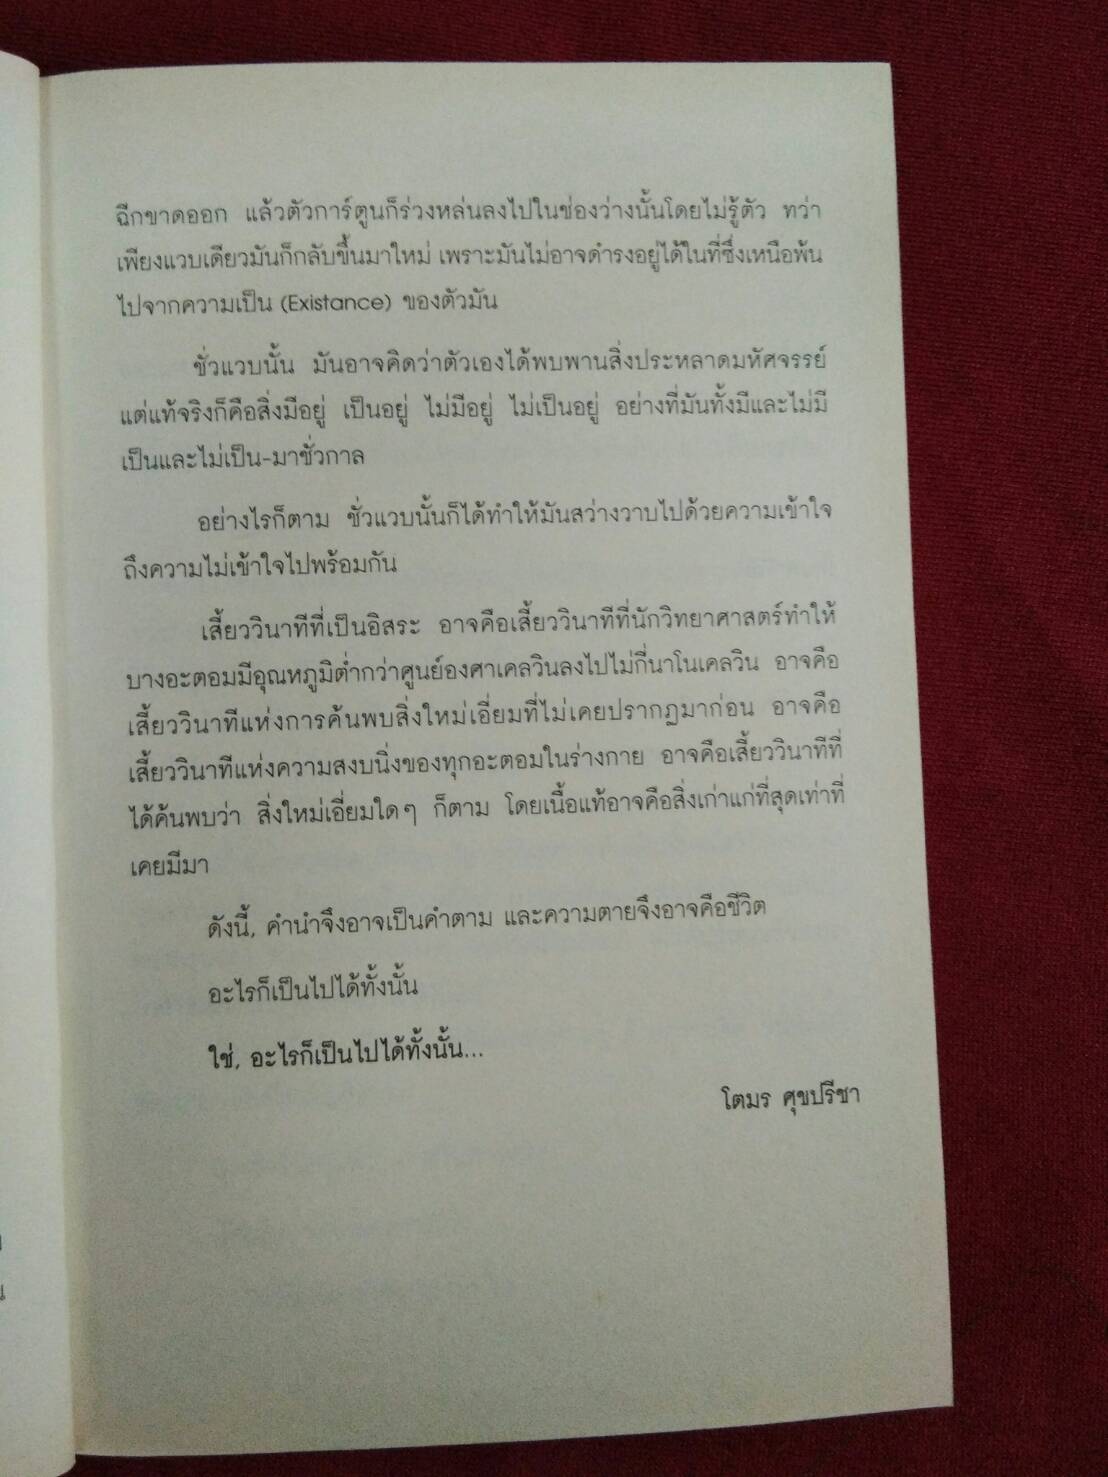 ฉีกขาดออก แล้วตัวการ์ตูนก็ร่วงหล่นลงไปในช่องว่างนั้นโดยไม่รู้ตัว ทว่า
เพียงแวบเดียวมันก็กลับขึ้นมาใหม่ เพราะมันไม่อาจดำรงอยู่ได้ในที่ซึ่งเหนือพ้น
ไปจากความเป็น (Existance) ของตัวมัน
ชั่วแวบนั้น มันอาจคิดว่าตัวเองได้พบพานสิ่งประหลาดมหัศจรรย์
แต่แท้จริงก็คือสิ่งมีอยู่ เป็นอยู่ ไม่มีอยู่ ไม่เป็นอยู่ อย่างที่มันทั้งมีและไม่มี
เป็นและไม่เป็น-มาชั่วกาล
อย่างไรก็ตาม ชั่วแวบนั้นก็ได้ทำให้มันสว่างวาบไปด้วยความเข้าใจ
ถึงความไม่เข้าใจไปพร้อมกัน
เสี้ยววินาทีที่เป็นอิสระ อาจคือเสี้ยววินาทีที่นักวิทยาศาสตร์ทำให้
บางอะตอมมีอุณหภูมิต่ำกว่าศูนย์องศาเคลวินลงไปไม่กี่นาโนเคลวิน อาจคือ
เสี้ยววินาทีแห่งการค้นพบสิ่งใหม่เอี่ยมที่ไม่เคยปรากฏมาก่อน อาจคือ
เสี้ยววินาทีแห่งความสงบนิ่งของทุกอะตอมในร่างกาย อาจคือเสี้ยววินาทีที่
ได้ค้นพบว่า สิ่งใหม่เอี่ยมใดๆ ก็ตาม โดยเนื้อแท้อาจคือสิ่งเก่าแก่ที่สุดเท่าที่
เคยมีมา
ดังนี้, คำนำจึงอาจเป็นคำตาม และความตายจึงอาจคือชีวิต
อะไรก็เป็นไปได้ทั้งนั้น
ใช่, อะไรก็เป็นไปได้ทั้งนั้น...
โตมร ศุขปรีชา